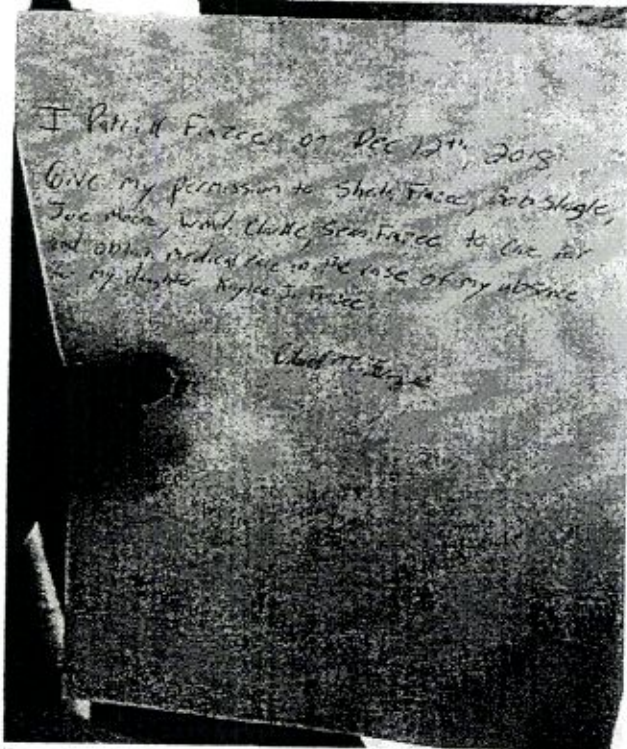 I Patrick Frazee on Dec 12th, 2018
Give my permission to Sheila Frazee, Bob Slagle,
Joe Moore, Clarke, Sean Frazee to care for
and obtain medical care in the case of my absence
for my daughter Kaylee J. Frazee